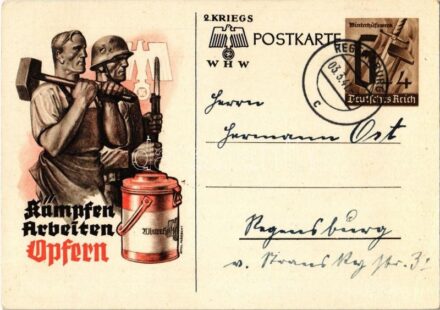 2. KRIEGS
WHW
POSTKARTE
Winterhilfswerk
6 4
Deutsches Reich
REG
03.3.4
c
Herrn
Hermann Ost
Kämpfen
Arbeiten
Opfern
Regensburg